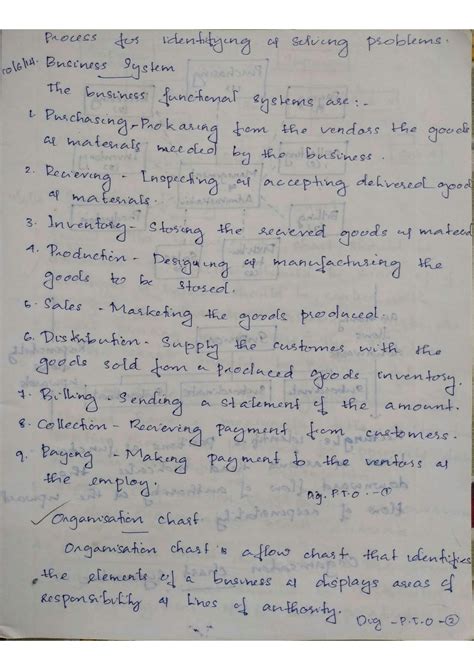 Process for identifying & solving problems.
10/6/14. Business System
The business functional systems are :-
1. Purchasing - Prokaring from the vendors the goods
& materials needed by the business.
2. Recieving - Inspecting & accepting delivered goods
& materials.
3. Inventory - Storing the recieved goods & material
4. Production - Designing & manufacturing the
goods to be stored.
5. Sales - Marketing the goods produced
6. Distribution - Supply the customer with the
goods sold from a produced goods inventory.
7. Billing - Sending a statement of the amount.
8. Collection - Recieving payment from customers.
9. Paying - Making payment to the vendors &
the employ.
Dig. P.T.O - ①
Organisation chart
Organisation chart is a flow chart that identifies
the elements of a business & displays areas of
responsibility & lines of authority.
Dig - P.T.O - ②